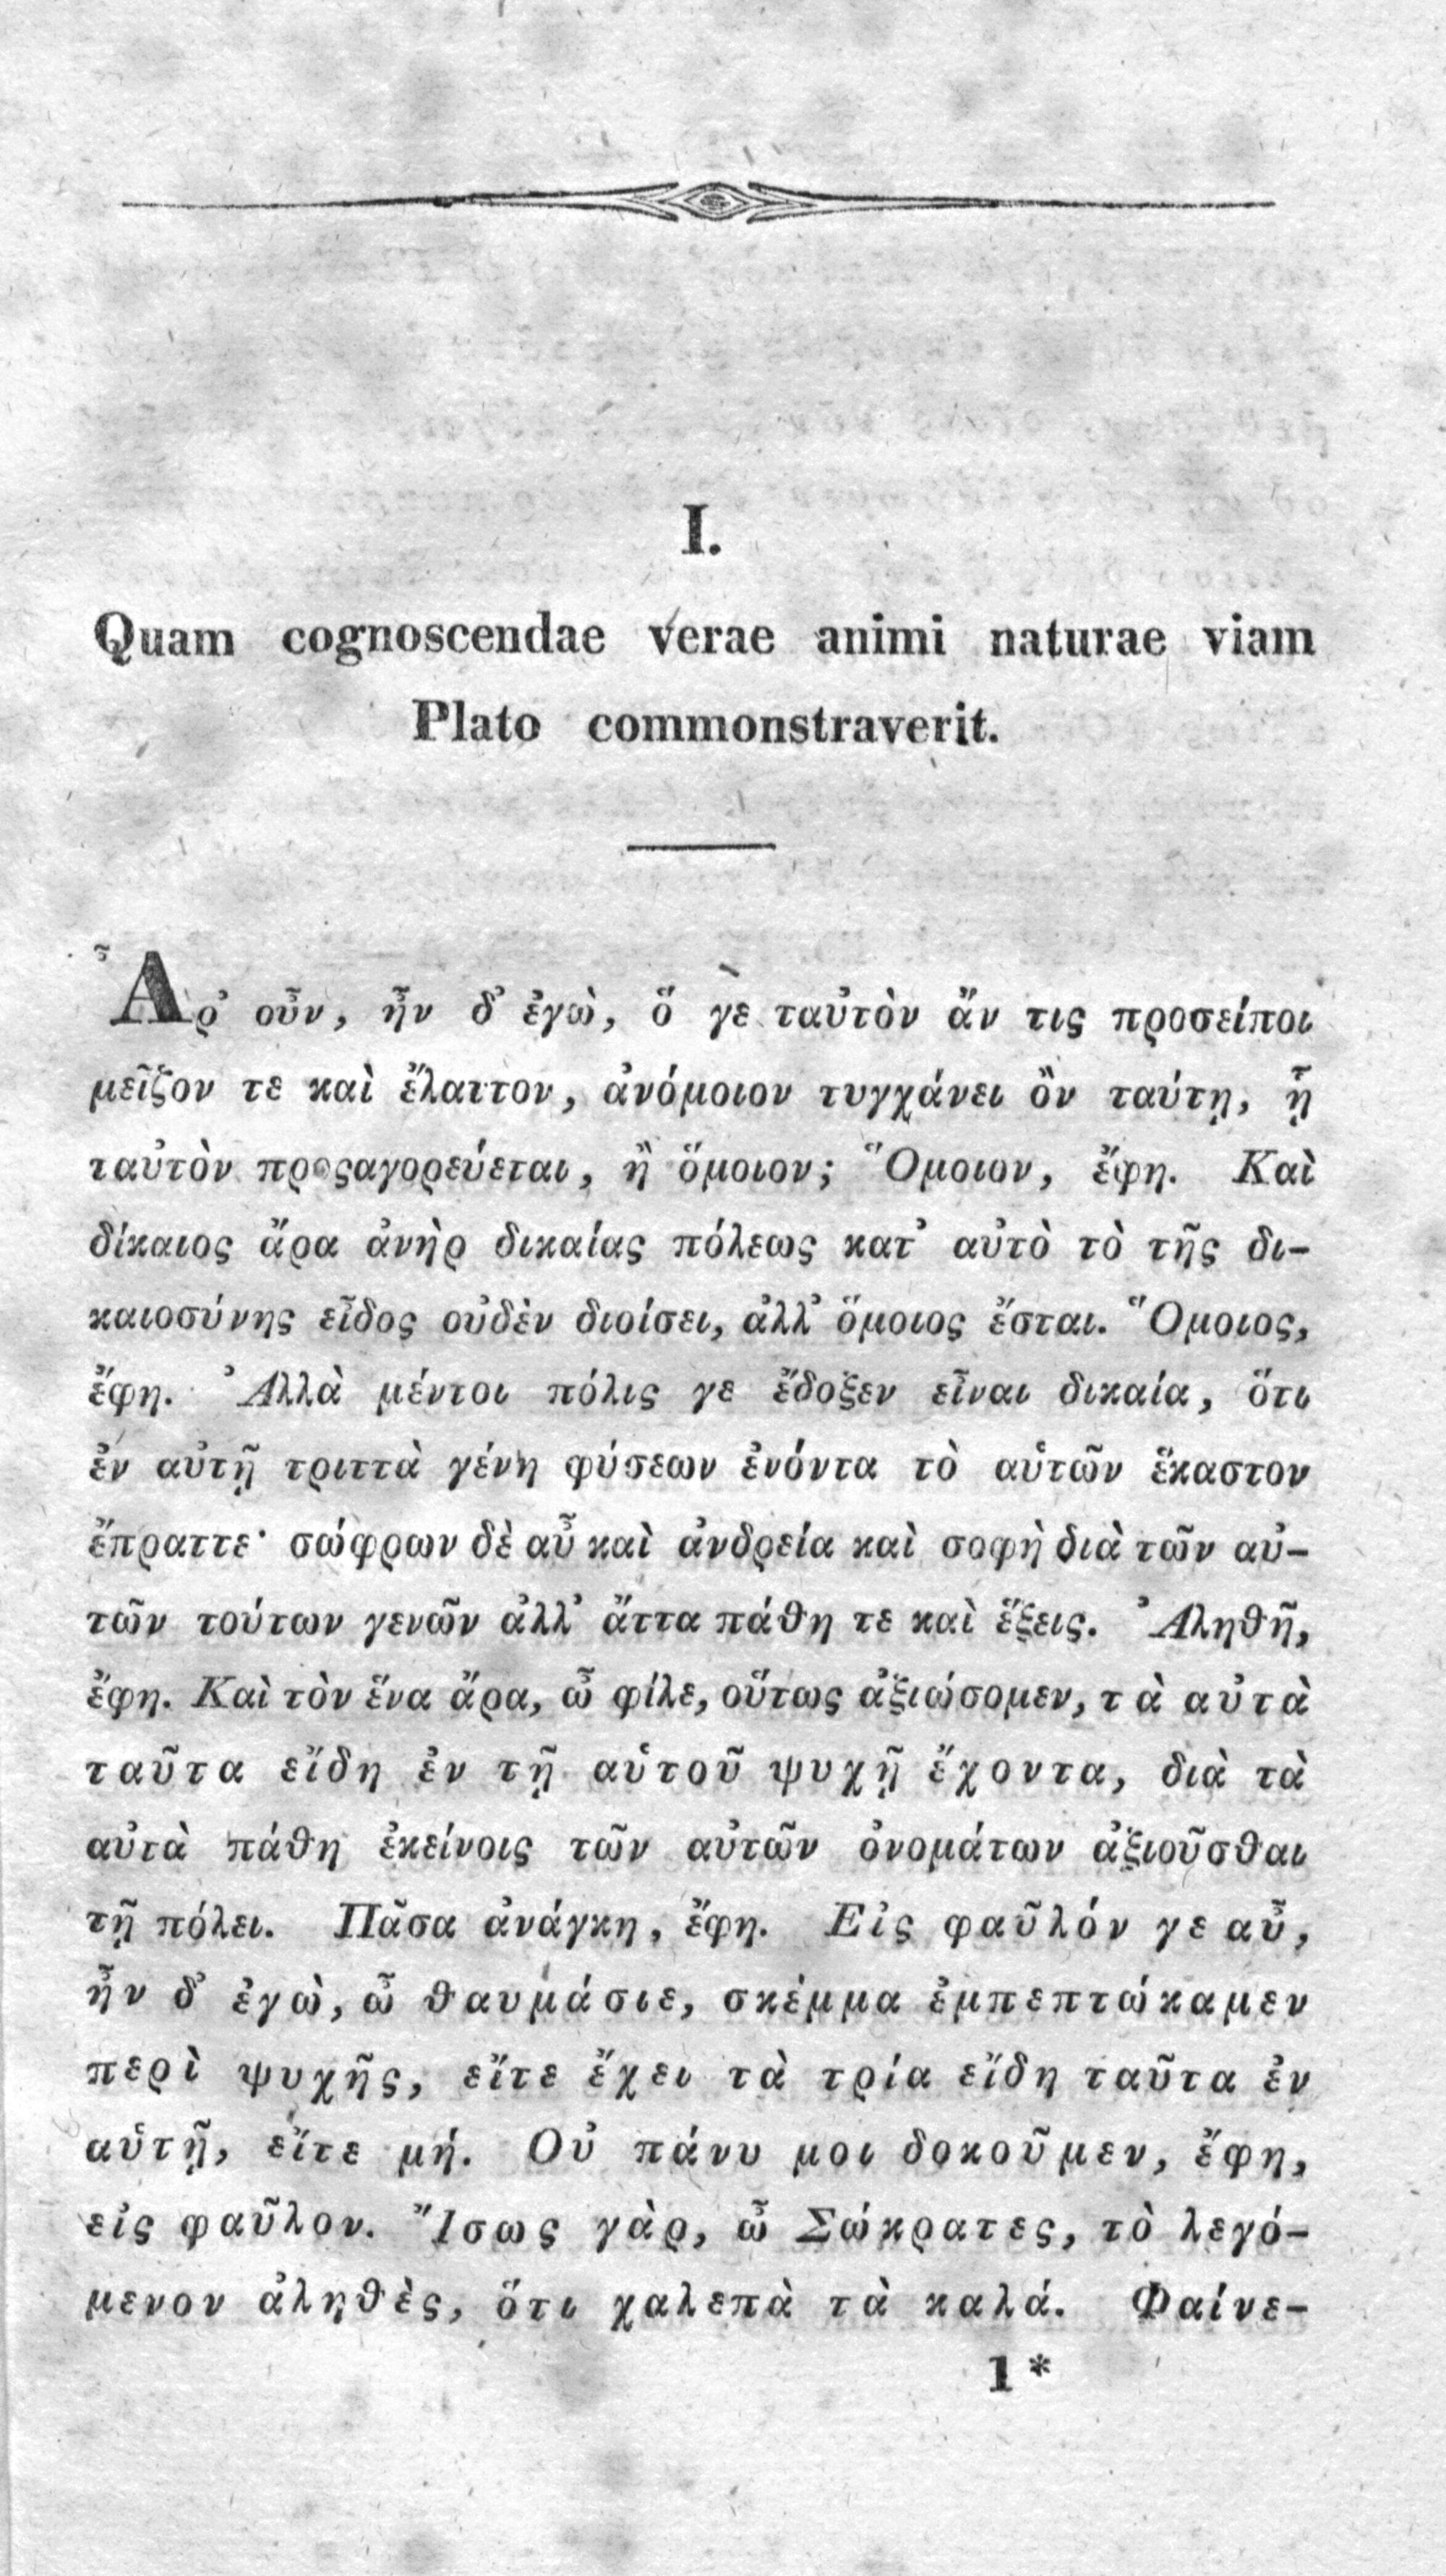 I.
Quam cognoscendae verae animi naturae viam
Plato commonstraverit.
Ἆρ᾽ οὖν, ἦν δ᾽ ἐγὼ, ὅ γε ταὐτὸν ἄν τις προσείποι
μεῖζον τε καὶ ἔλαττον, ἀνόμοιον τυγχάνει ὂν ταύτῃ, ᾗ
ταὐτὸν προςαγορεύεται, ἢ ὅμοιον; Ὅμοιον, ἔφη. Καὶ
δίκαιος ἄρα ἀνὴρ δικαίας πόλεως κατ᾽ αὐτὸ τὸ τῆς δι-
καιοσύνης εἶδος οὐδὲν διοίσει, ἀλλ᾽ ὅμοιος ἔσται. Ὅμοιος,
ἔφη. Ἀλλὰ μέντοι πόλις γε ἔδοξεν εἶναι δικαία, ὅτι
ἐν αὐτῇ τριττὰ γένη φύσεων ἐνόντα τὸ αὑτῶν ἕκαστον
ἔπραττε· σώφρων δὲ αὖ καὶ ἀνδρεία καὶ σοφὴ διὰ τῶν αὐ-
τῶν τούτων γενῶν ἀλλ᾽ ἄττα πάθη τε καὶ ἕξεις. Ἀληθῆ,
ἔφη. Καὶ τὸν ἕνα ἄρα, ὦ φίλε, οὕτως ἀξιώσομεν, τὰ αὐτὰ
ταῦτα εἴδη ἐν τῇ αὑτοῦ ψυχῇ ἔχοντα, διὰ τὰ
αὐτὰ πάθη ἐκείνοις τῶν αὐτῶν ὀνομάτων ἀξιοῦσθαι
τῇ πόλει. Πᾶσα ἀνάγκη, ἔφη. Εἰς φαῦλόν γε αὖ,
ἦν δ᾽ ἐγὼ, ὦ θαυμάσιε, σκέμμα ἐμπεπτώκαμεν
περὶ ψυχῆς, εἴτε ἔχει τὰ τρία εἴδη ταῦτα ἐν
αὑτῇ, εἴτε μή. Οὐ πάνυ μοι δοκοῦμεν, ἔφη,
εἰς φαῦλον. Ἴσως γὰρ, ὦ Σώκρατες, τὸ λεγό-
μενον ἀληθὲς, ὅτι χαλεπὰ τὰ καλά. Φαίνε-
1*